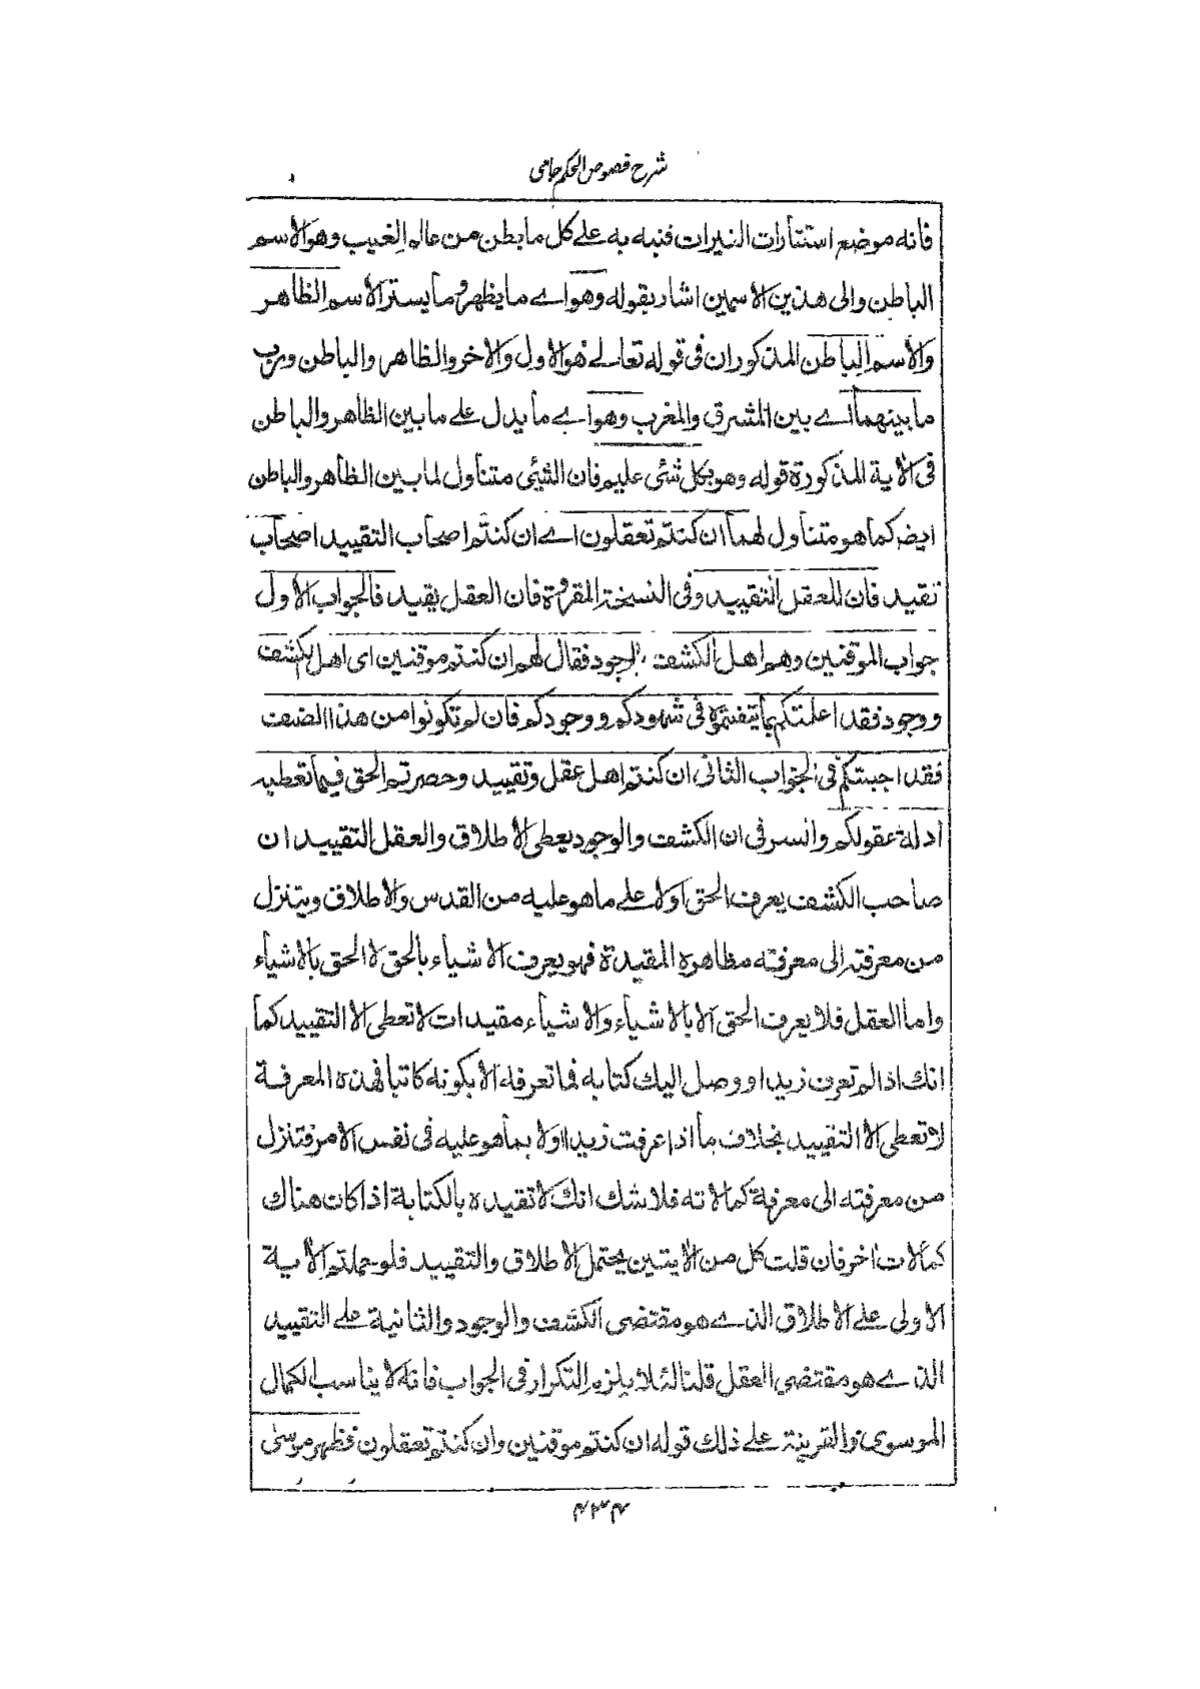 شرح فصوص الحكم جامى
فانه موضع استتارات النيرات فنبه به على كل ما بطن من عالم الغيب وهو الاسم
الباطن والى هذين الاسمين اشار بقوله وهو اے ما يظهر وما يستتر الاسم الظاهر
والاسم الباطن المذكوران فى قوله تعالے هو الاول والاخر والظاهر والباطن ورب
ما بينهما اے بين المشرق والمغرب وهو اے ما يدل على ما بين الظاهر والباطن
فى الاية المذكورة قوله وهو بكل شئى عليم فان الشئى متناول لما بين الظاهر والباطن
ايضا كما هو متناول لهما ان كنتم تعقلون اے ان كنتم اصحاب التقييد اصحاب
تقيد فان للعقل التقييد وفى النسخة المقروة فان العقل يقيد فالجواب الاول
جواب الموقنين وهم اهل الكشف والوجود فقال لهم ان كنتم موقنين اى اهل كشف
ووجود فقد اعلمتكم بما تيقنتموه فى شهودكم ووجودكم فان لم تكونوا من هذا الصنف
فقد اجبتكم فى الجواب الثانى ان كنتم اهل عقل وتقييد وحصرتم الحق فيما تعطيه
ادلة عقولكم والسر فى ان الكشف والوجود يعطى الاطلاق والعقل التقييد ان
صاحب الكشف يعرف الحق اولا على ما هو عليه من القدس والاطلاق ويتنزل
من معرفته الى معرفته مظاهره المقيدة فهو يعرف الاشياء بالحق لا الحق بالاشياء
واما العقل فلا يعرف الحق الا بالاشياء والاشياء مقيدات لا تعطى الا التقييد كما
انك اذا لم تعرف زيدا ووصل اليك كتابه فما تعرفه الا بكونه كاتبا فهذه المعرفة
لا تعطى الا التقييد بخلاف ما اذا عرفت زيدا اولا بما هو عليه فى نفس الامر فتنزل
من معرفته الى معرفة كمالاته فلا شك انك لا تقيده بالكتابة اذا كان هناك
كمالات اخر فان قلت كل من الايتين يحتمل الاطلاق والتقييد فلو حملتم الاية
الاولى على الاطلاق الذے هو مقتضى الكشف والوجود والثانية على التقييد
الذے هو مقتضى العقل قلنا لئلا يلزم التكرار فى الجواب فانه لا يناسب الكمال
الموسوى والقرينة على ذلك قوله ان كنتم موقنين وان كنتم تعقلون فظهر موسى
۴۳۴